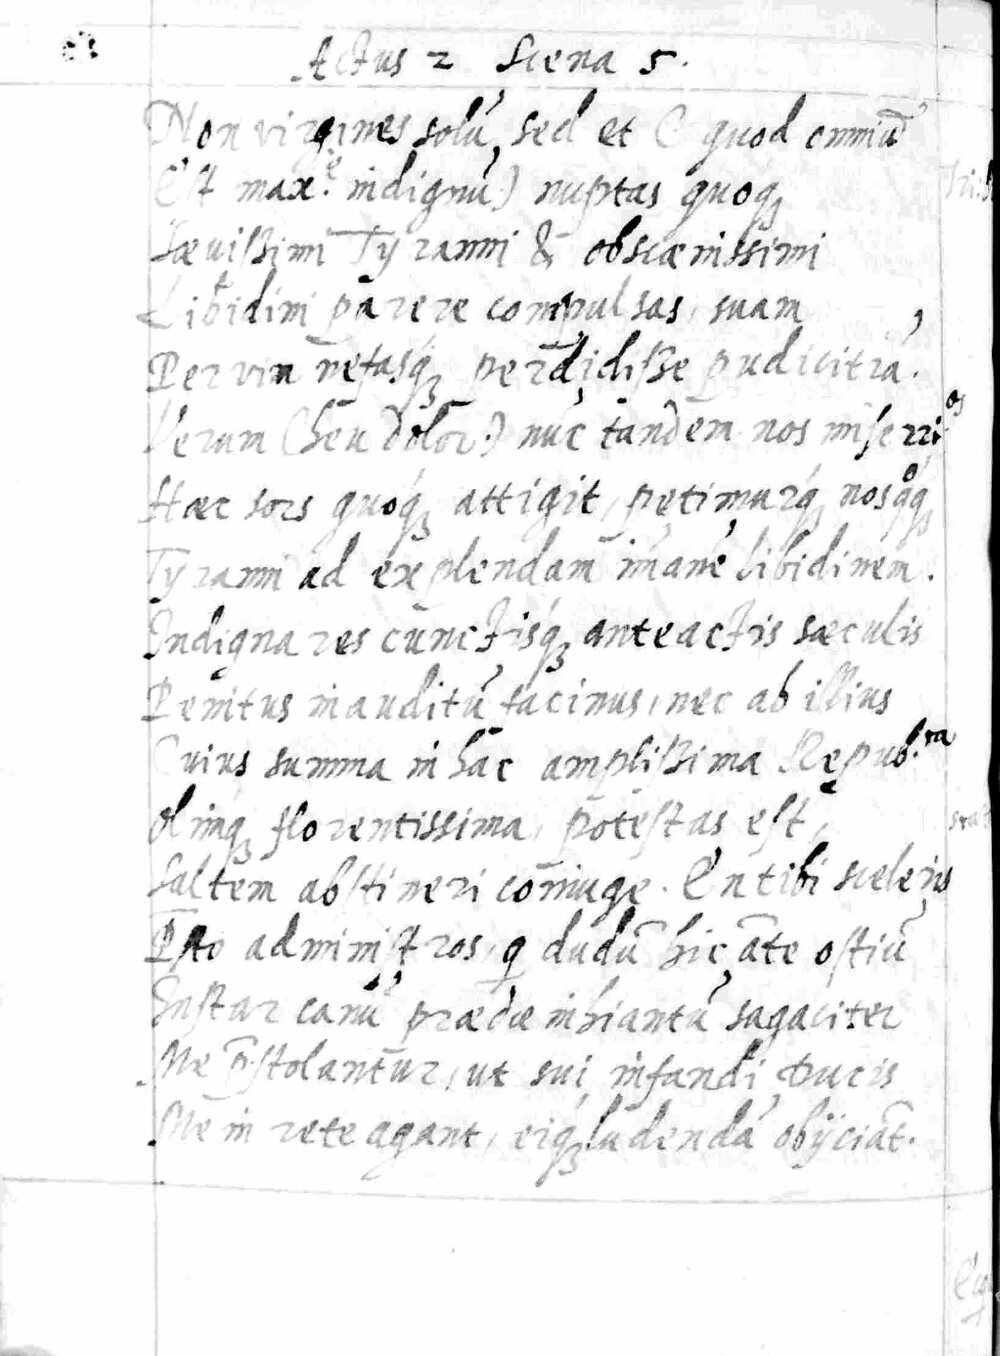 Actus 2 Scena 5.
Non virgines solū, sed et ( quod omniū
Est max.e indignū) nuptas quoq;
Sævißimi Tyranni & obscænissimi
Libidini parere compulsas, suam
Per vim nefasq; perdidiße pudicitiā.
Verum (heu dolor.) nūc tandem nos miserrios
Hæc sors quoq; attigit, petimurq; nosqoq;
Tyranni ad explendam imanē libidinem.
Indigna res cunctisq; anteactis sæculis
Penitus inauditū facinus, nec ab illius
Cuius summa in hac amplißima Repub.ca
Olimq; florentissima, potestas est,
Saltem abstineri coniuge. En tibi sceleris
Isto administros, q dudū hic āte ostiū
Instar canū prædæ inhiantū sagaciter
Me p̄stolantur, ut sui infandi Ducis
Me in rete agant, eiq; ludendā obijciāt.